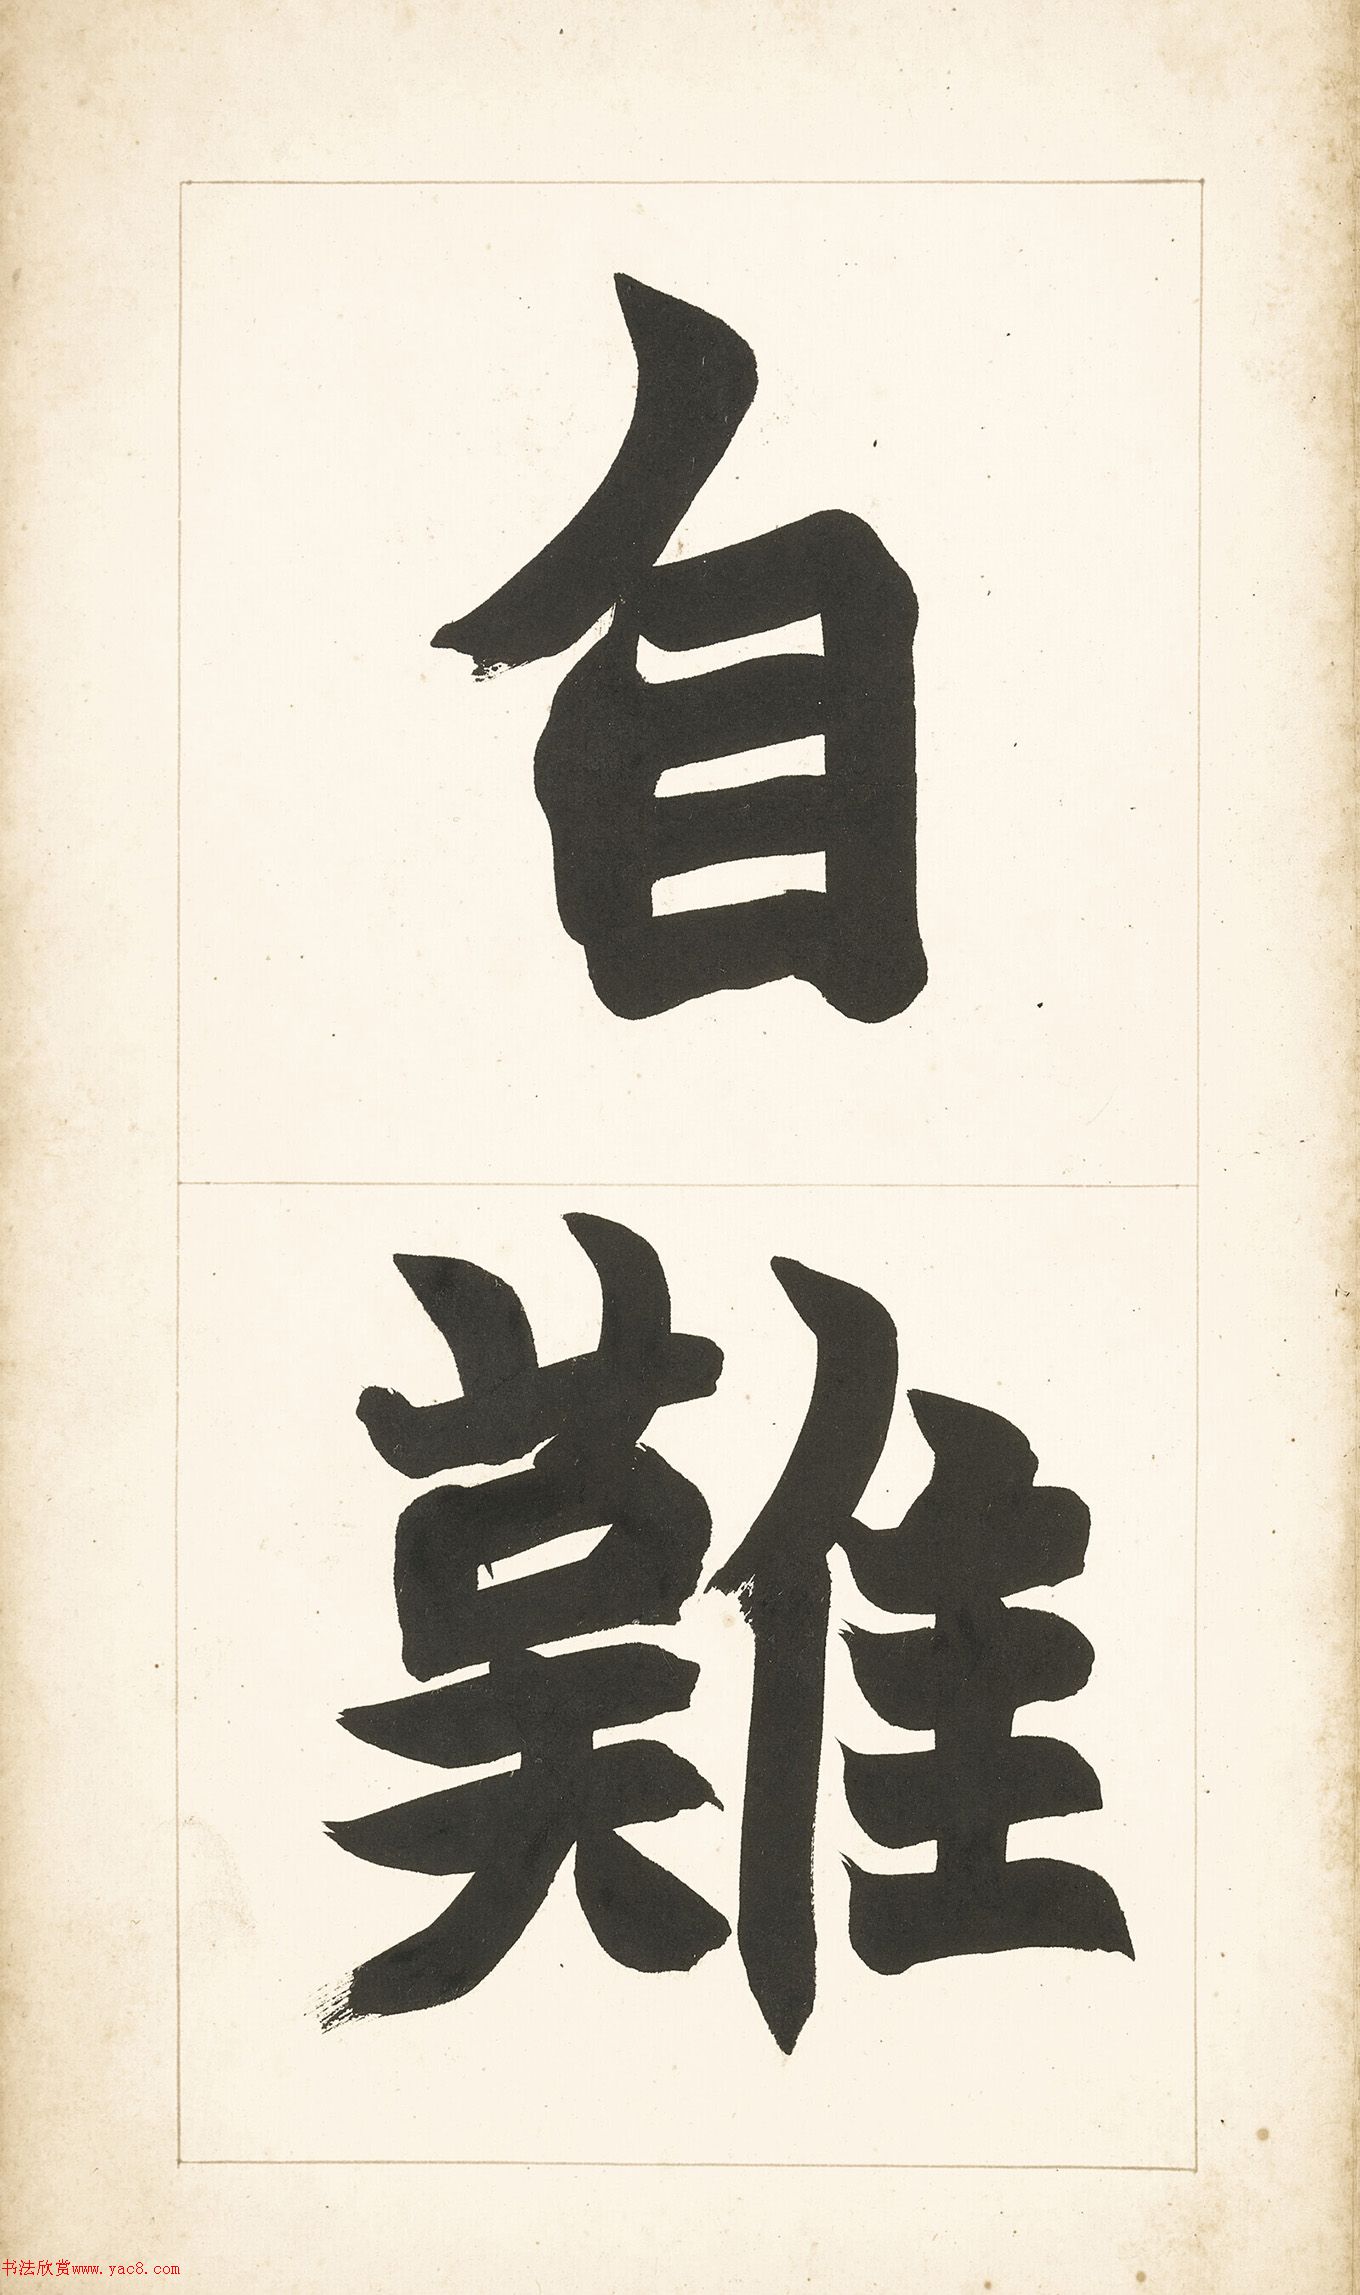 自
難
书法欣赏www.yac8.com